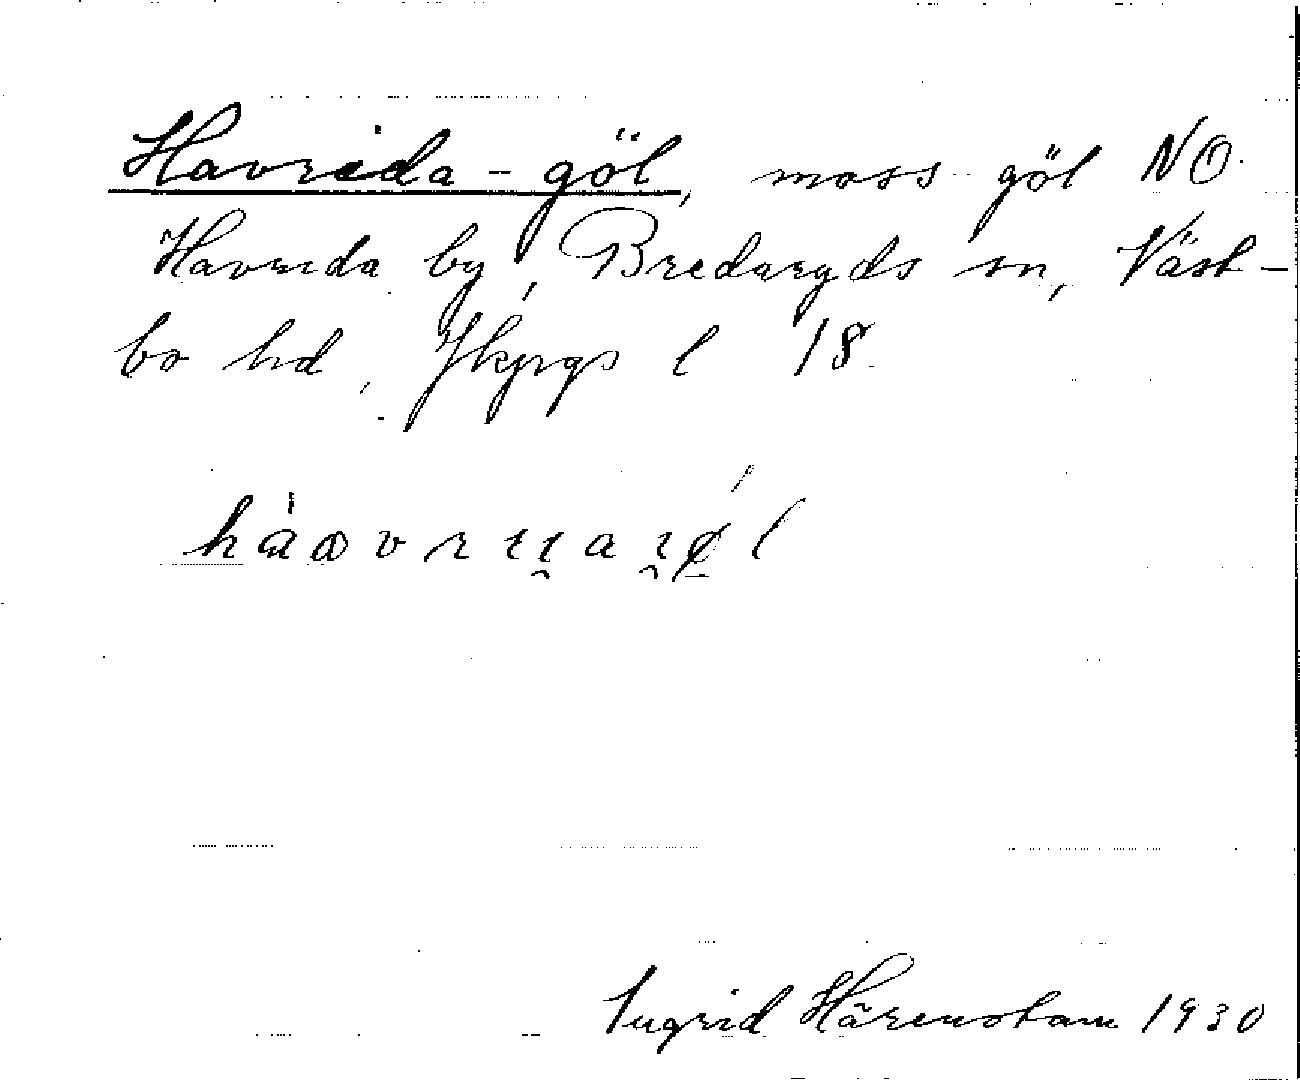 Havrida-göl, moss-göl NO.
Havrida by, Bredaryds sn, Väst-
bo hd, Jkpgs l 18.
Ingrid Härenstam 1930